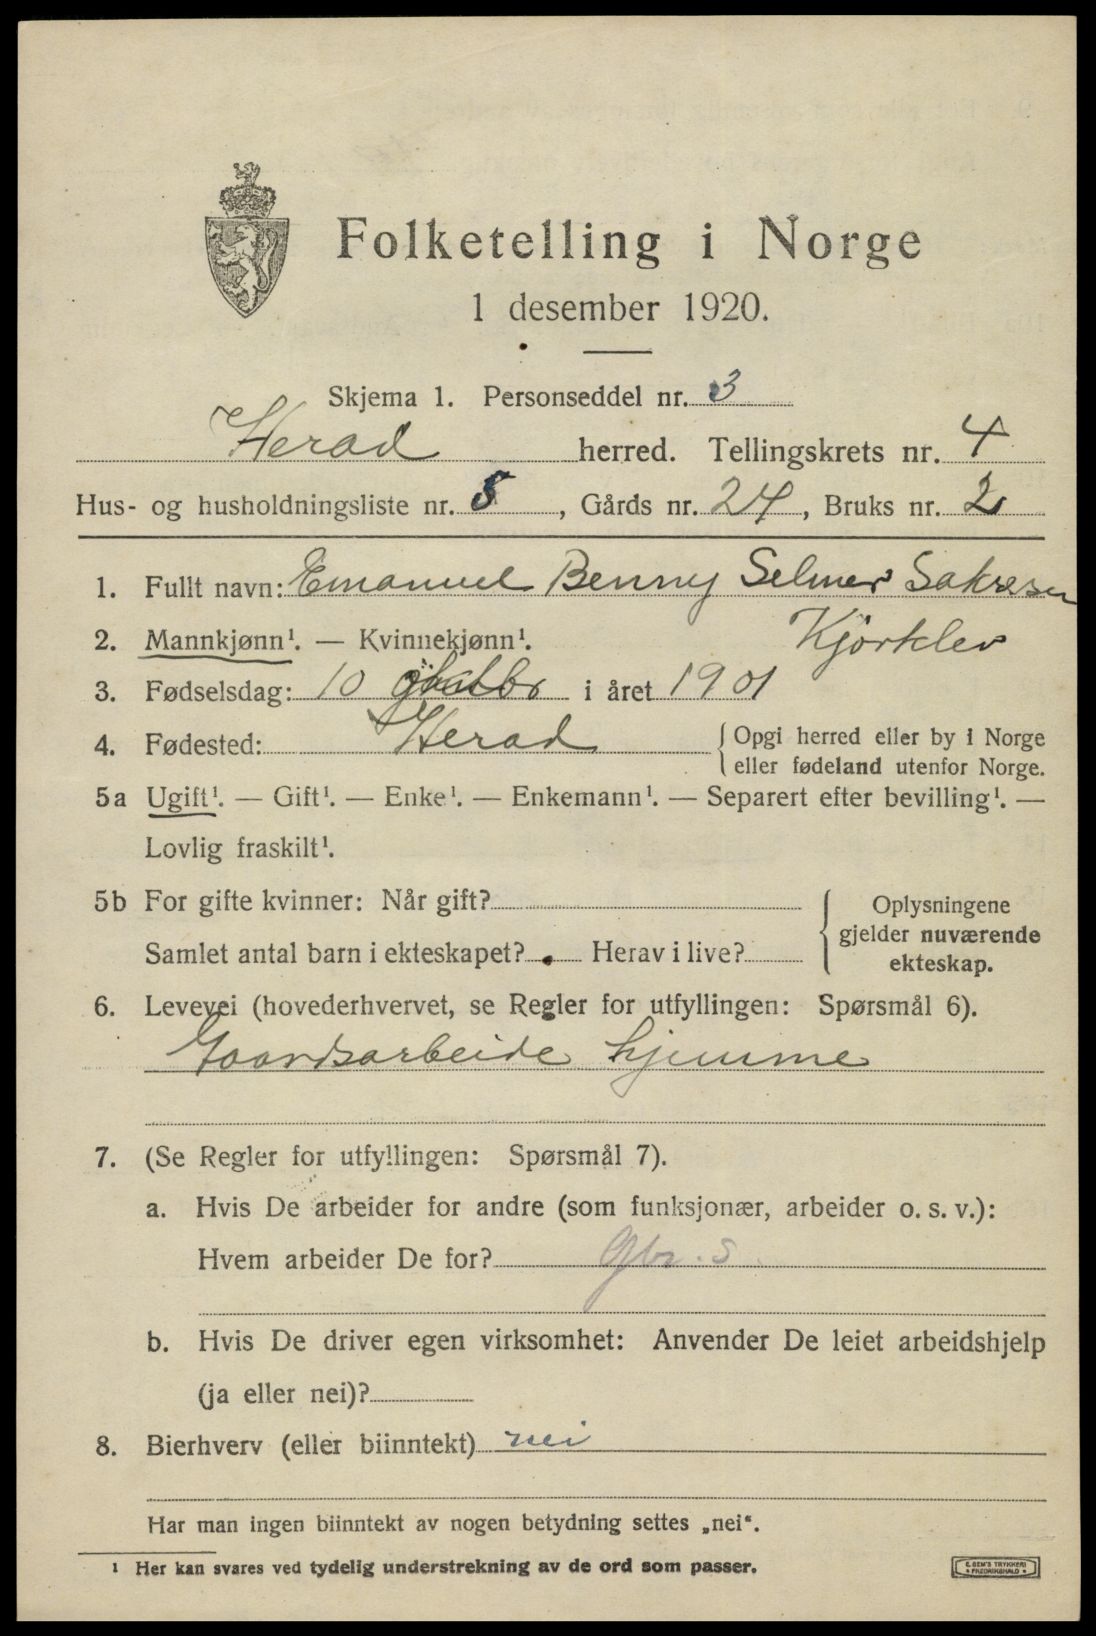 Folketelling i Norge
1 desember 1920.
Skjema 1. Personseddel nr. 3
Herad herred. Tellingskrets nr. 4
Hus- og husholdningsliste nr. 5, Gårds nr. 24, Bruks nr. 2
1. Fullt navn: Emanuel Benny Selmer Sakresen
Kjörklev
2. Mannkjønn¹. — Kvinnekjønn¹.
3. Fødselsdag: 10 i året 1901
4. Fødested: Herad {Opgi herred eller by i Norge
eller fødeland utenfor Norge.
5a Ugift¹. — Gift¹. — Enke¹. — Enkemann¹. — Separert efter bevilling¹. —
Lovlig fraskilt¹.
5b For gifte kvinner: Når gift?
Samlet antal barn i ekteskapet? Herav i live?
Oplysningene
gjelder nuværende
ekteskap.
6. Levevei (hovederhvervet, se Regler for utfyllingen: Spørsmål 6).
Gaardsarbeide hjemme
7. (Se Regler for utfyllingen: Spørsmål 7).
a. Hvis De arbeider for andre (som funksjonær, arbeider o. s. v.):
Hvem arbeider De for? Gbr. s.
b. Hvis De driver egen virksomhet: Anvender De leiet arbeidshjelp
(ja eller nei)?
8. Bierhverv (eller biinntekt) nei
Har man ingen biinntekt av nogen betydning settes „nei“.
¹ Her kan svares ved tydelig understrekning av de ord som passer.
E. SEM'S TRYKKERI
* FREDRIKSHALD *